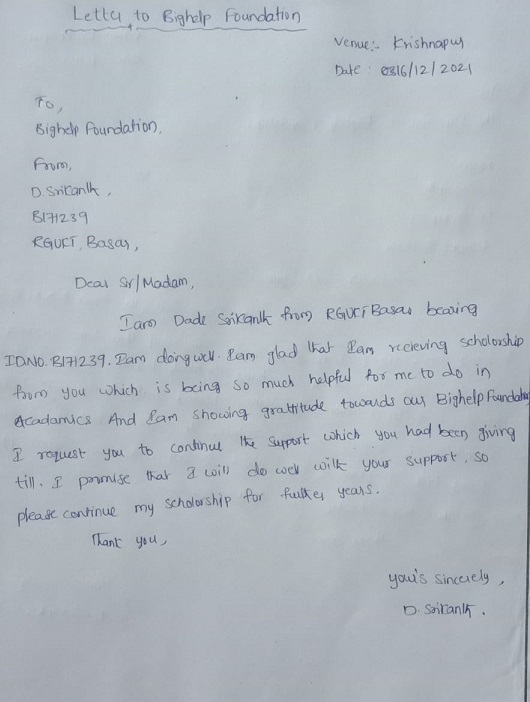 Letter to Bighelp Foundation
Venue:- Krishnapur
Date: 16/12/2021
To,
Bighelp Foundation,
From,
D. Srikanth,
B171239
RGUKT, Basar,
Dear Sir/Madam,
I am Dade Srikanth from RGUKT Basar bearing
ID NO. B171239. I am doing well. I am glad that I am recieving scholorship
from you which is being so much helpful for me to do in
Acadamics. And I am showing grattitude towards our Bighelp Foundation
I request you to continue the support which you had been giving
till. I promise that I will do well with your support. so
please continue my scholorship for futher years.
Thank you,
your's sincerely,
D. Srikanth.